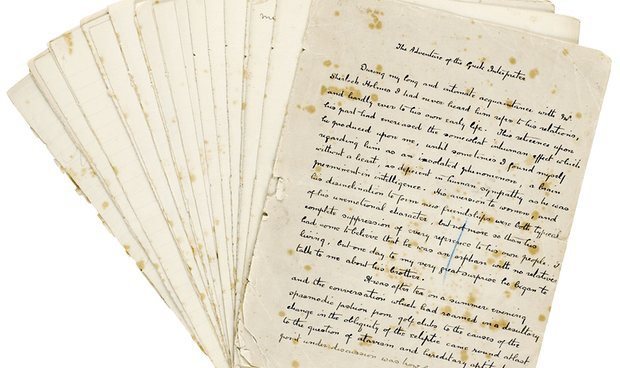 The Adventure of the Greek Interpreter
During my long and intimate acquaintance with Mr
Sherlock Holmes I had never heard him refer to his relations,
and hardly ever to his own early life. This reticence upon
his part had increased the somewhat inhuman effect which
he produced upon me, until sometimes I found myself
regarding him as an isolated phenomenon, a brain
without a heart, as deficient in human sympathy as he was
preeminent in intelligence. His aversion to women, and
his disinclination to form new friendships were both typical
of his unemotional character, but not more so than his
complete suppression of every reference to his own people. I
had come to believe that he was an orphan with no relatives
living, but one day to my very great surprise he began to
talk to me about his brother.
It was after tea on a summer evening
and the conversation which had roamed in a desultory
spasmodic fashion from golf clubs to the causes of the
change in the obliquity of the ecliptic came round at last
to the question of atavism and hereditary
point under discussion was how